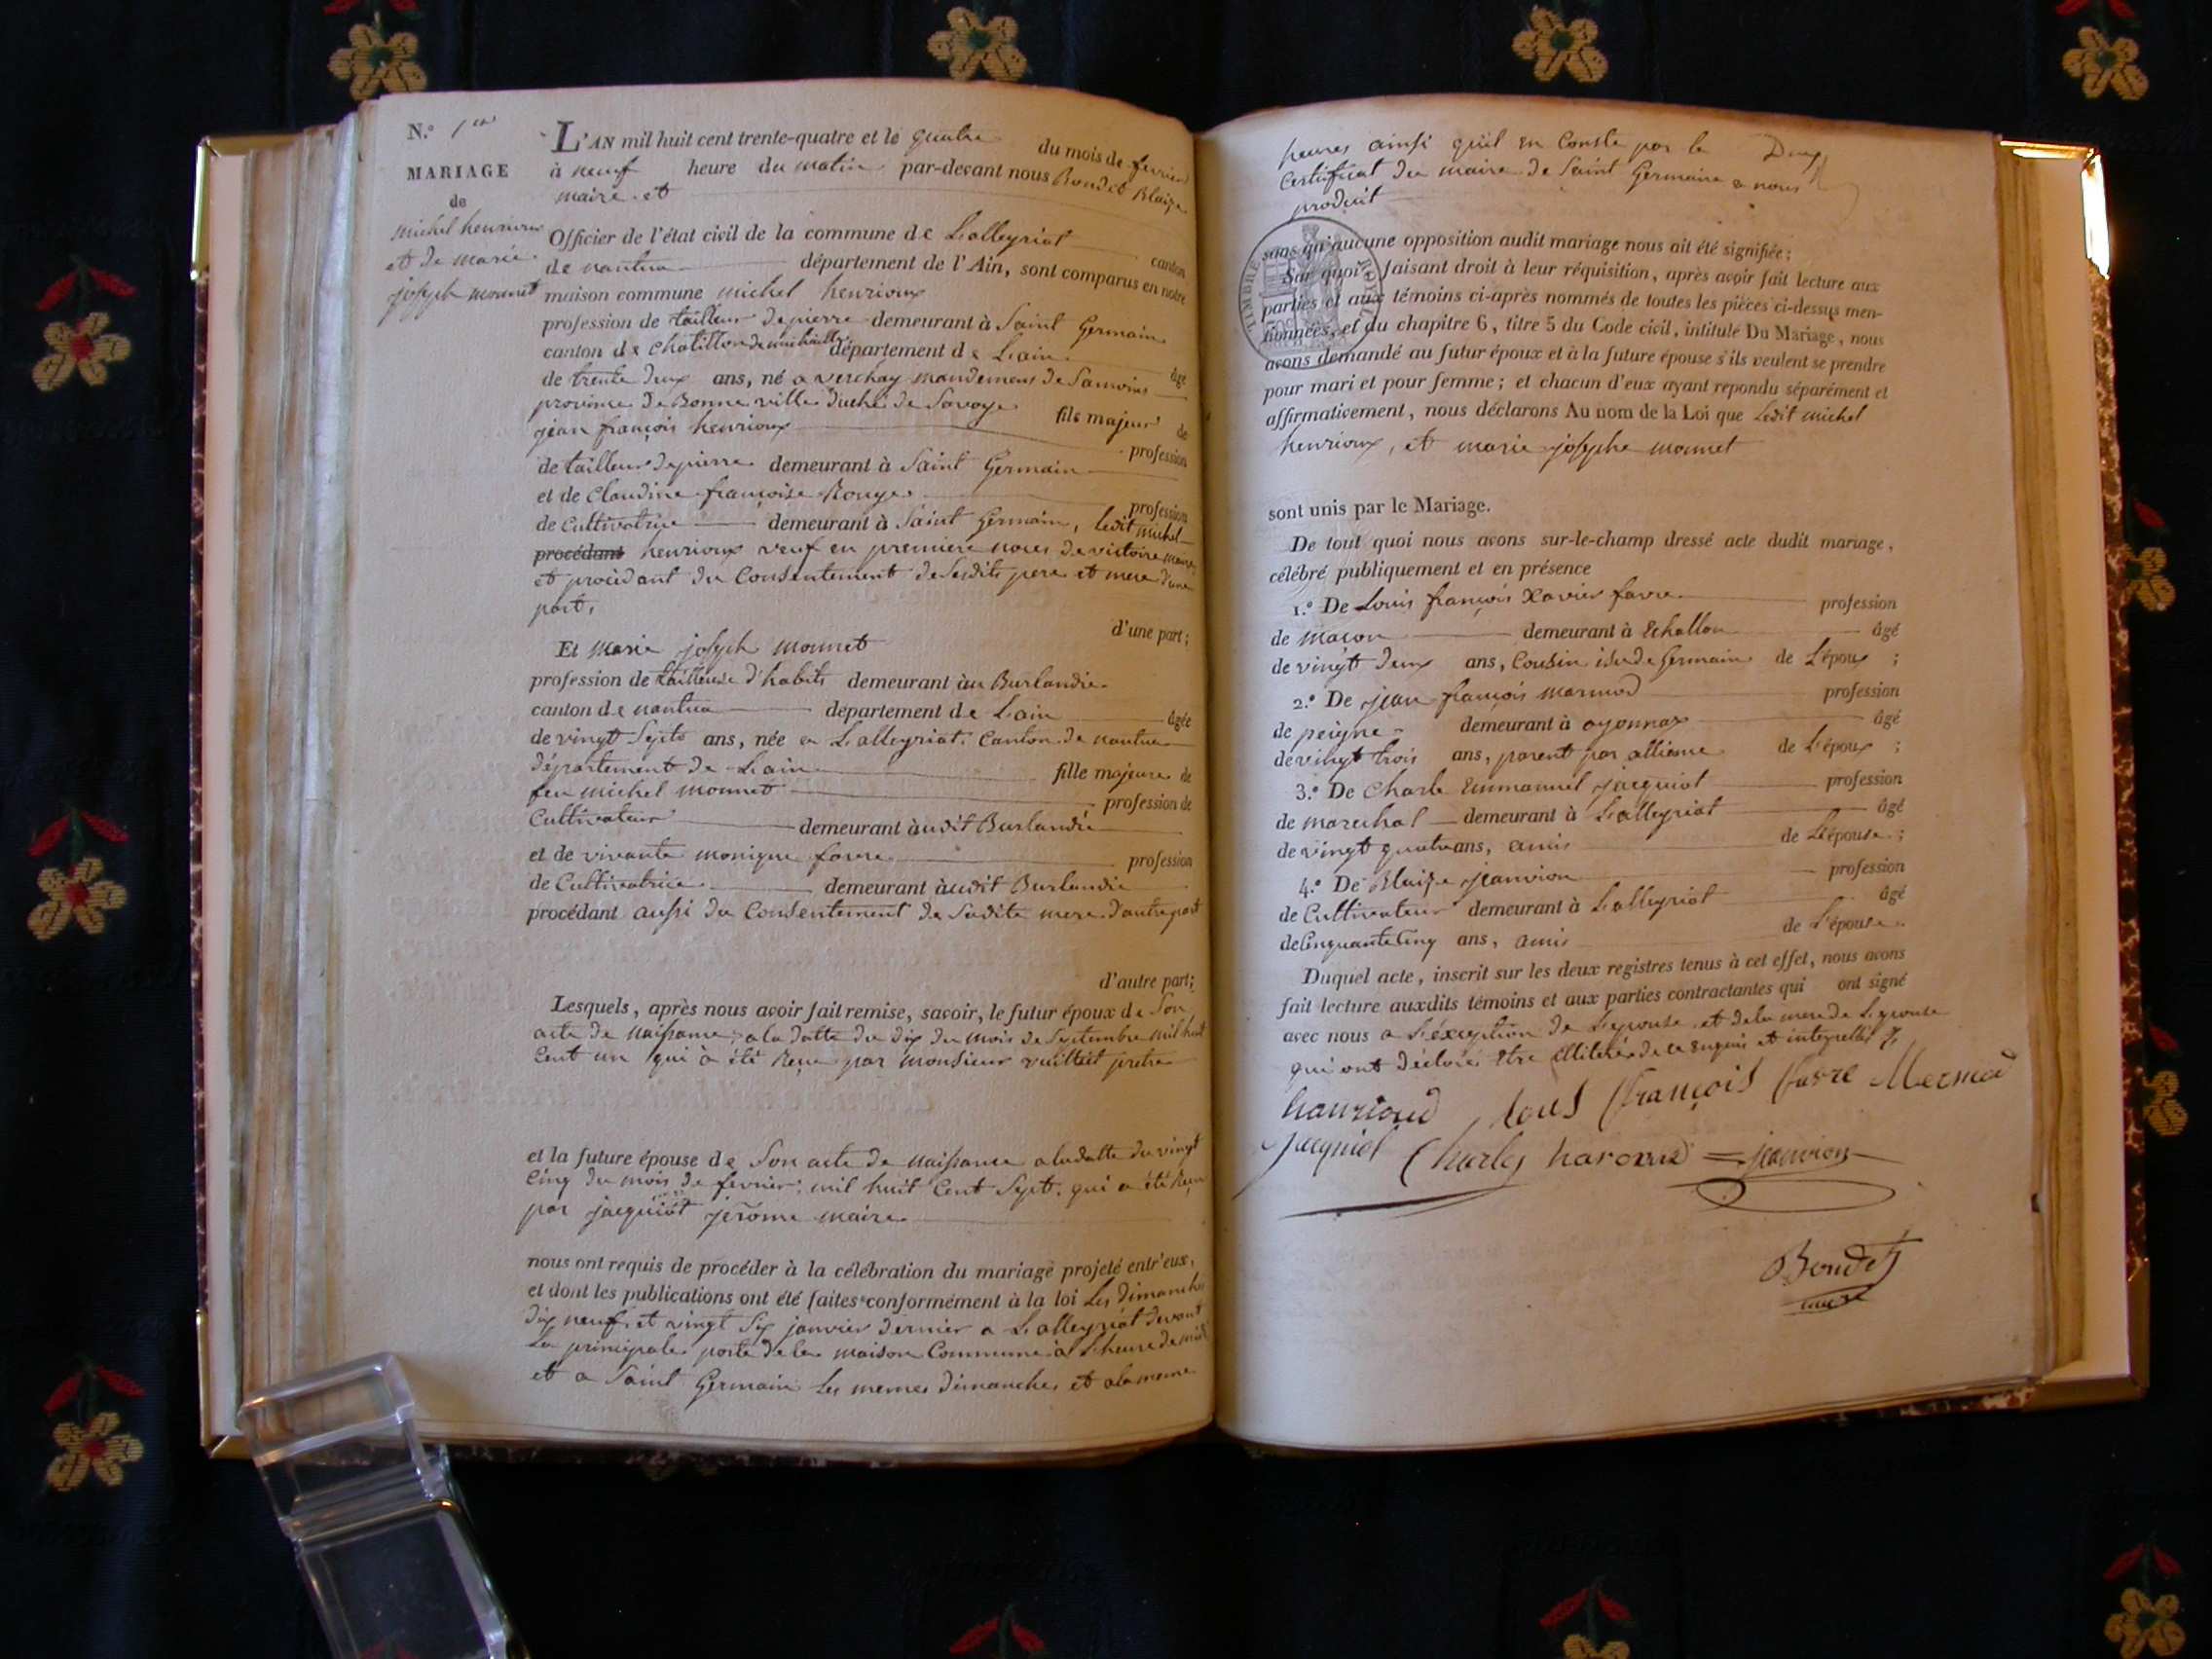 N.º 1er
MARIAGE
de
michel henrioux
et de marie
joseph monnet
L'AN mil huit cent trente-quatre et le quatre du mois de fevrier
à neuf heure du matin par-devant nous Boudet Blaize
maire et
Officier de l'état civil de la commune de Lalleyriat canton
de nantua département de l'Ain, sont comparus en notre
maison commune michel henrioux
profession de tailleur depierre demeurant à Saint Germain
canton de Chatillon de michaille département de Lain âgé
de trente deux ans, né a verchay mandement de Samoins
province de Bonneville duché de Savoye fils majeur de
jean françois henrioux profession
de tailleur depierre demeurant à Saint Germain
et de Claudine françoise Rouge profession
de Cultivatrice demeurant à Saint Germain, ledit michel
procédant henrioux veuf en premiere noces de victoire
et procèdant du Consentement de Sesdits pere et mere d'une
part,
d'une part;
Et Marie joseph monnet
profession de tailleuse d'habits demeurant au Burlandie
canton de nantua département de Lain âgée
de vingt Septs ans, née a Lalleyriat Canton de nantua
département de Lain fille majeure de
feu michel monnet profession de
Cultivateur demeurant àudit Burlandie
et de vivante monique favre profession
de Cultivatrice demeurant àudit Burlandie
procédant aussi du Consentement de Sadite mere d'autre part
d'autre part;
Lesquels, après nous avoir fait remise, savoir, le futur époux de Son
acte de naissance, a la datte du dix du mois de Septembre mil huit
Cent un qui à été Reçu par monsieur vuillet pretre
et la future épouse de Son acte de naissance aladatte du vingt
Cinq du mois de fevrier mil huit Cent Sept. qui a été Reçu
par jacquiot jerôme maire
nous ont requis de procéder à la célébration du mariage projeté entr'eux,
et dont les publications ont été faites conformément à la loi Les dimanches
dix neuf et vingt Six janvier dernier a Lalleyriat devant
La principale porte de la maison Commune à L'heure de midi
et a Saint Germain les memes dimanches et ala meme
heures ainsi qu'il en Conste par le
Certificat du maire de Saint Germain a nous
produit
sans qu'aucune opposition audit mariage nous ait été signifiée;
Sur quoi, faisant droit à leur réquisition, après avoir fait lecture aux
parties et aux témoins ci-après nommés de toutes les pièces ci-dessus men-
tionnées, et du chapitre 6, titre 5 du Code civil, intitulé Du Mariage, nous
avons demandé au futur époux et à la future épouse s'ils veulent se prendre
pour mari et pour femme; et chacun d'eux ayant repondu séparément et
affirmativement, nous déclarons Au nom de la Loi que Ledit michel
henrioux, et marie josephe monnet
TIMBRE ROYAL
sont unis par le Mariage.
De tout quoi nous avons sur-le-champ dressé acte dudit mariage,
célébré publiquement et en présence
1.º De Louis françois Xavier favre profession
de maçon demeurant à Echallon âgé
de vingt deux ans, Cousin isu de Germain de L'époux ;
2.º De jean françois marmod profession
de peigne demeurant à oyonnax âgé
de vingt trois ans, parent par alliance de L'époux ;
3.º De Charle Emmanuel jacquiot profession
de marechal demeurant à Lalleyriat âgé
de vingt quatre ans, amis de L'épouse ;
4.º De Blaize jeanvion profession
de Cultivateur demeurant à Lalleyriat âgé
de Cinquante Cinq ans, amis de L'épouse
Duquel acte, inscrit sur les deux registres tenus à cet effet, nous avons
fait lecture auxdits témoins et aux parties contractantes qui ont signé
avec nous a L'éxception de Lepouse et de la mere de Lepouse
qui ont déclaré être illiterée de ce enquis et interpellés
hanrioud Louis françois favre Mermod
jacquiot Charles = jeanvion
Boudet
maire